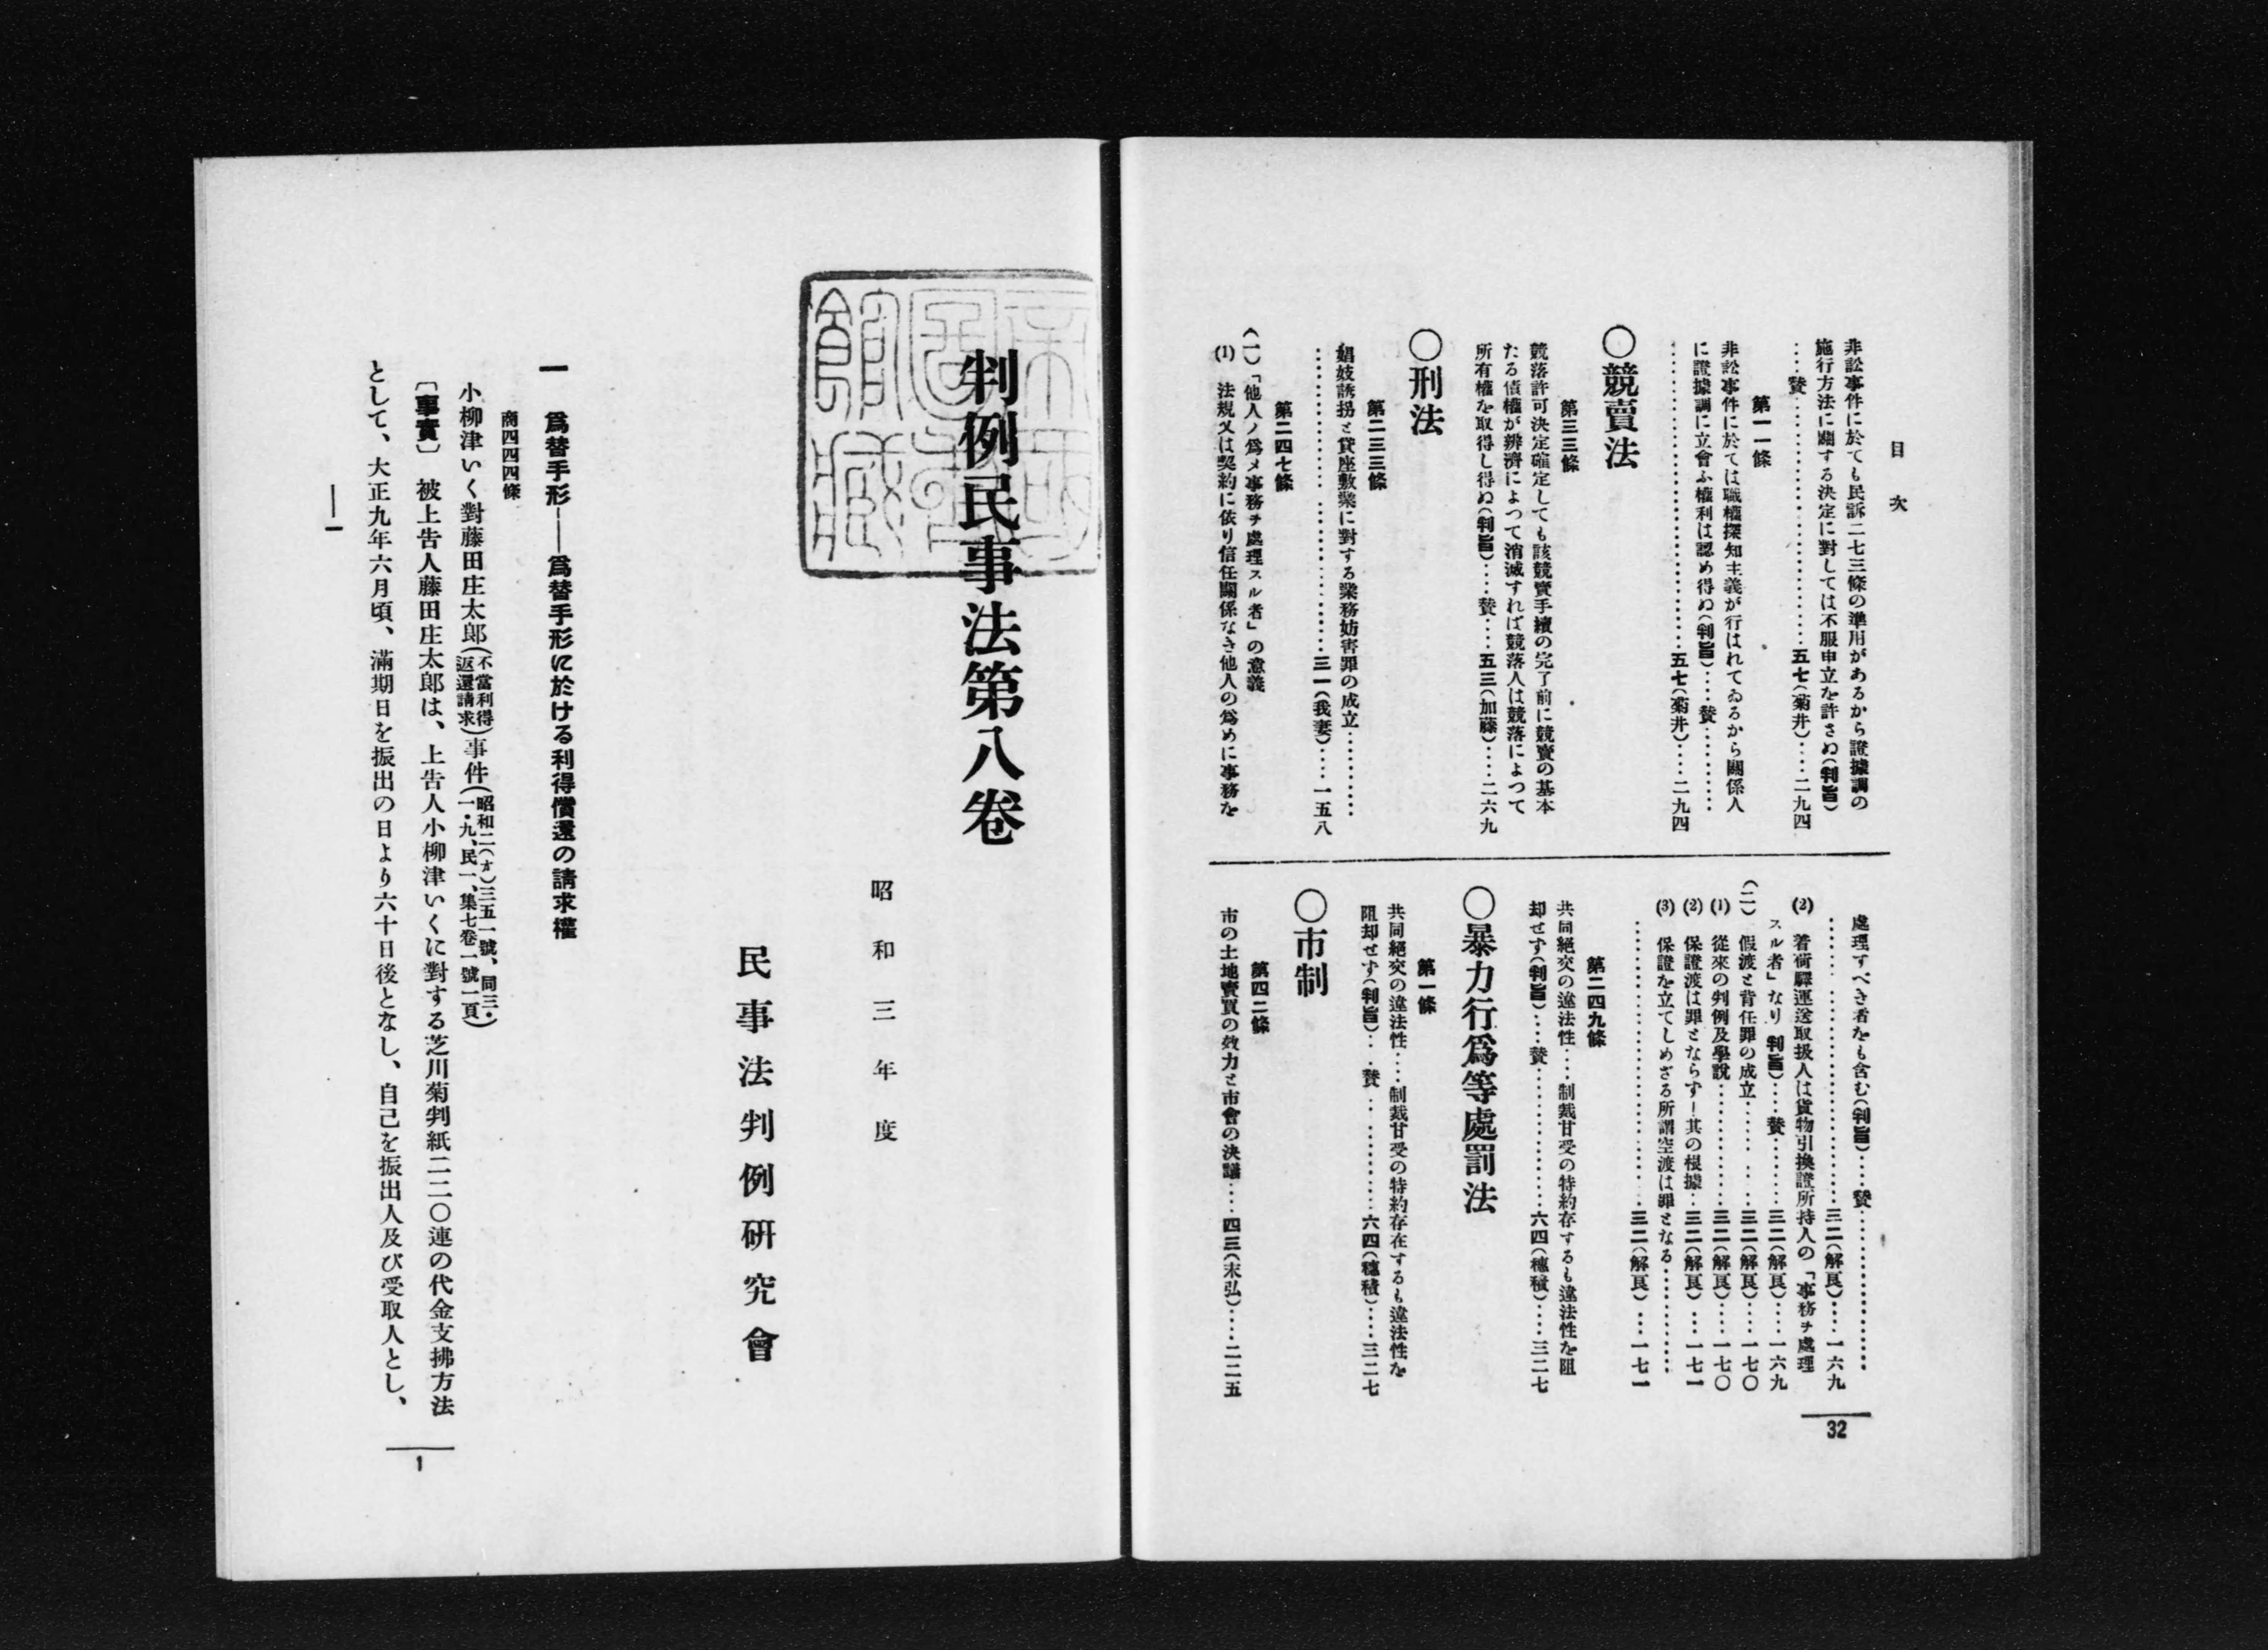 目次
非訟事件に於ても民訴二七三條の準用があるから證據調の
施行方法に關する決定に對しては不服申立を許さぬ(判旨)
……賛……………………………五七(菊井)……二九四
第一一條
非訟事件に於ては職權探知主義が行はれてゐるから關係人
に證據調に立會ふ權利は認め得ぬ(判旨)……賛…………
……………………………………五七(菊井)……二九四
〇競賣法
第三三條
競落許可決定確定しても該競賣手續の完了前に競賣の基本
たる債權が辨濟によつて消滅すれば競落人は競落によつて
所有權を取得し得ぬ(判旨)……賛……五三(加藤)……二六九
〇刑法
第二三三條
娼妓誘拐と貸座敷業に對する業務妨害罪の成立…………
……………………………………三一(我妻)……一五八
第二四七條
(一)「他人ノ爲メ事務ヲ處理スル者」の意義
(1) 法規又は契約に依り信任關係なき他人の爲めに事務を
處理すべき者をも含む(判旨)……賛…………………
……………………………………三二(解良)……一六九
(2) 着荷驛運送取扱人は貨物引換證所持人の「事務ヲ處理
スル者」なり 判旨)……賛…………三二(解良)……一六九
(二) 假渡と背任罪の成立……………三二(解良)……一七〇
(1) 從來の判例及學說………………三二(解良)……一七〇
(2) 保證渡は罪とならず―其の根據…三二(解良)……一七一
(3) 保證を立てしめざる所謂空渡は罪となる……………
……………………………………三二(解良)……一七一
第二四九條
共同絕交の違法性……制裁甘受の特約存するも違法性を阻
却せず(判旨)……賛………………六四(穗積)……三二七
〇暴力行爲等處罰法
第一條
共同絕交の違法性……制裁甘受の特約存在するも違法性を
阻却せず(判旨)……賛……………六四(穗積)……三二七
〇市制
第四二條
市の土地賣買の效力と市會の決議……四三(末弘)……二二五
32
帝國圖書館藏
判例民事法第八卷
昭和三年度
民事法判例硏究會
一 爲替手形――爲替手形に於ける利得償還の請求權
商四四四條
小柳津いく對藤田庄太郎(不當利得返還請求)事件(昭和二(オ)三五一號、同三・一・九、民一、集七卷一號一頁)
〔事實〕 被上告人藤田庄太郎は、上告人小柳津いくに對する芝川菊判紙二二〇連の代金支拂方法
として、大正九年六月頃、滿期日を振出の日より六十日後となし、自己を振出人及び受取人とし、
――一
1